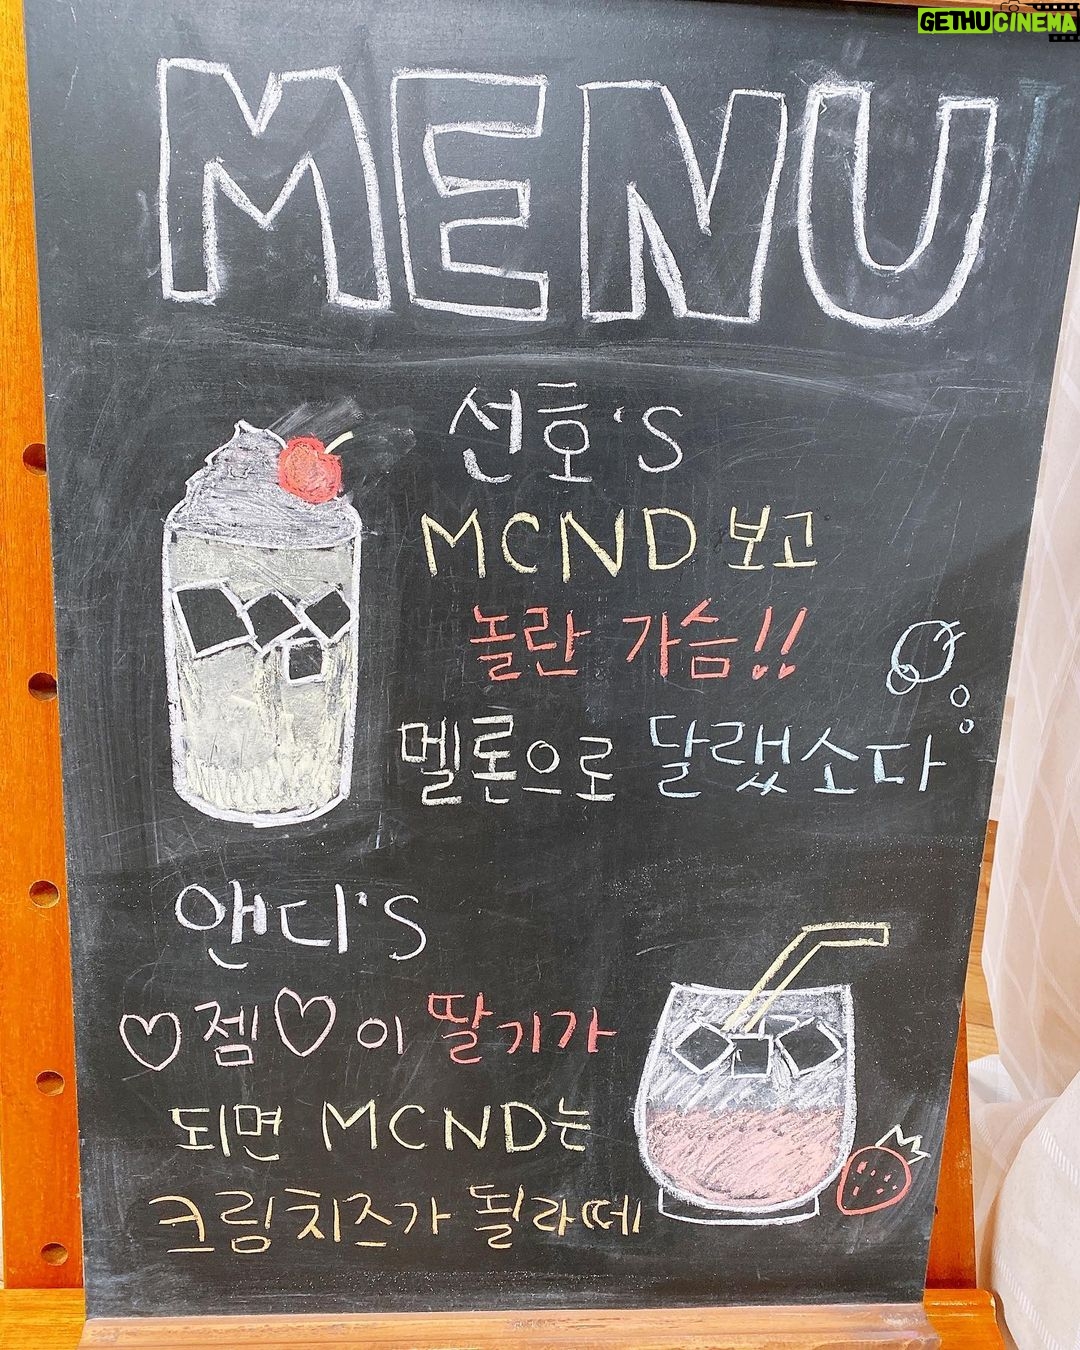 GETHUCINEMA
MENU
선호's
MCND 보고
놀란 가슴!!
멜론으로 달랬소다
앤디's
♡젬♡이 딸기가
되면 MCND는
크림치즈가 될라떼